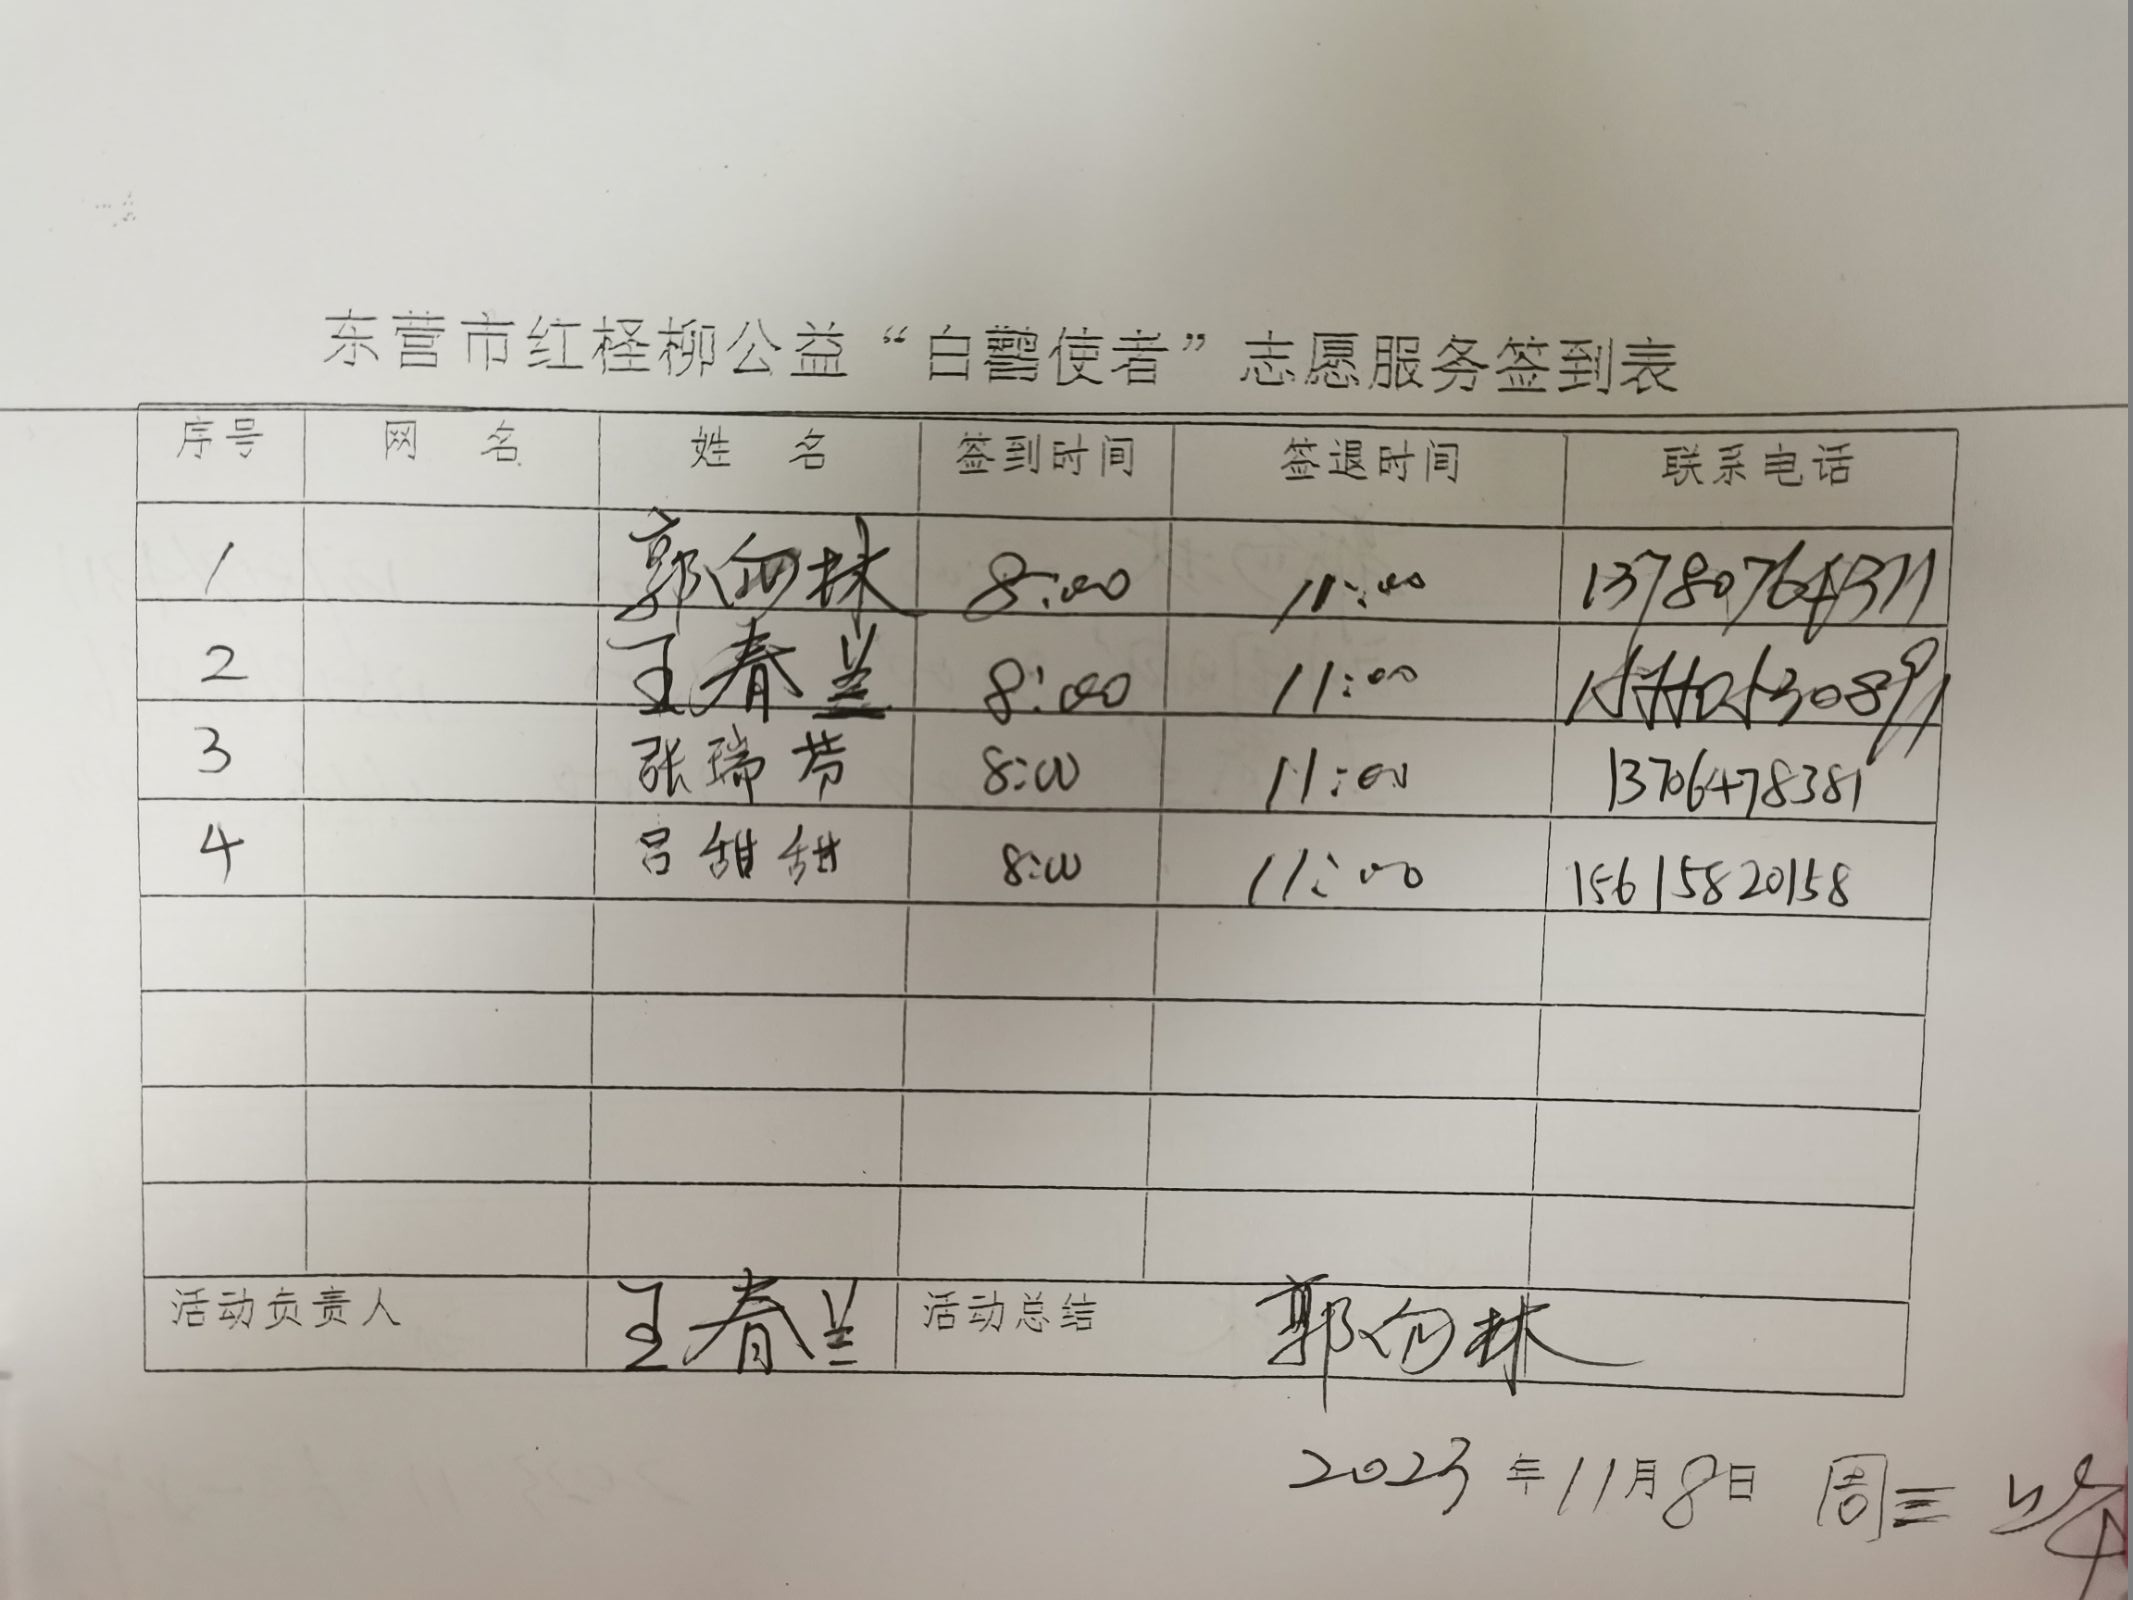 东营市红柽柳公益“白鹭使者”志愿服务签到表
序号 网 名 姓 名 签到时间 签退时间 联系电话
1 郭向林 8:00 11:00 13780764311
2 王春兰 8:00 11:00
3 张瑞芳 8:00 11:00 13706478381
4 吕甜甜 8:00 11:00 15615820158
活动负责人 王春兰 活动总结 郭向林
2023年11月8日 周三